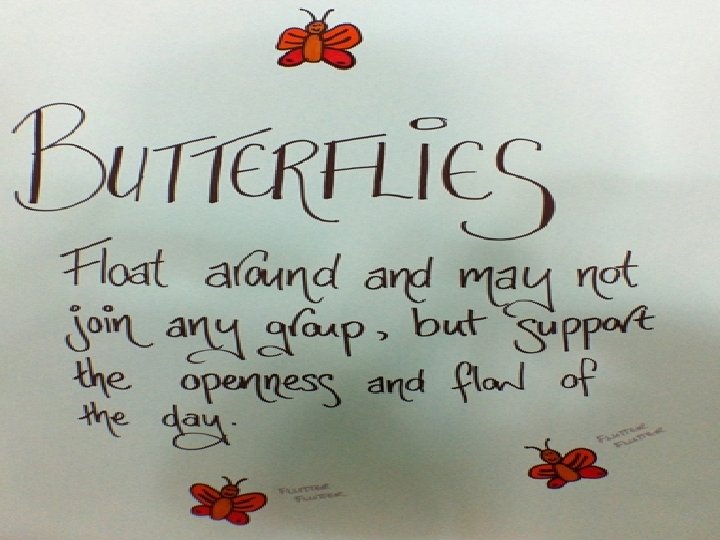 BUTTERFLIES
Float around and may not
join any group, but support
the openness and flow of
the day.
FLUTTER
FLUTTER
FLUTTER
FLUTTER